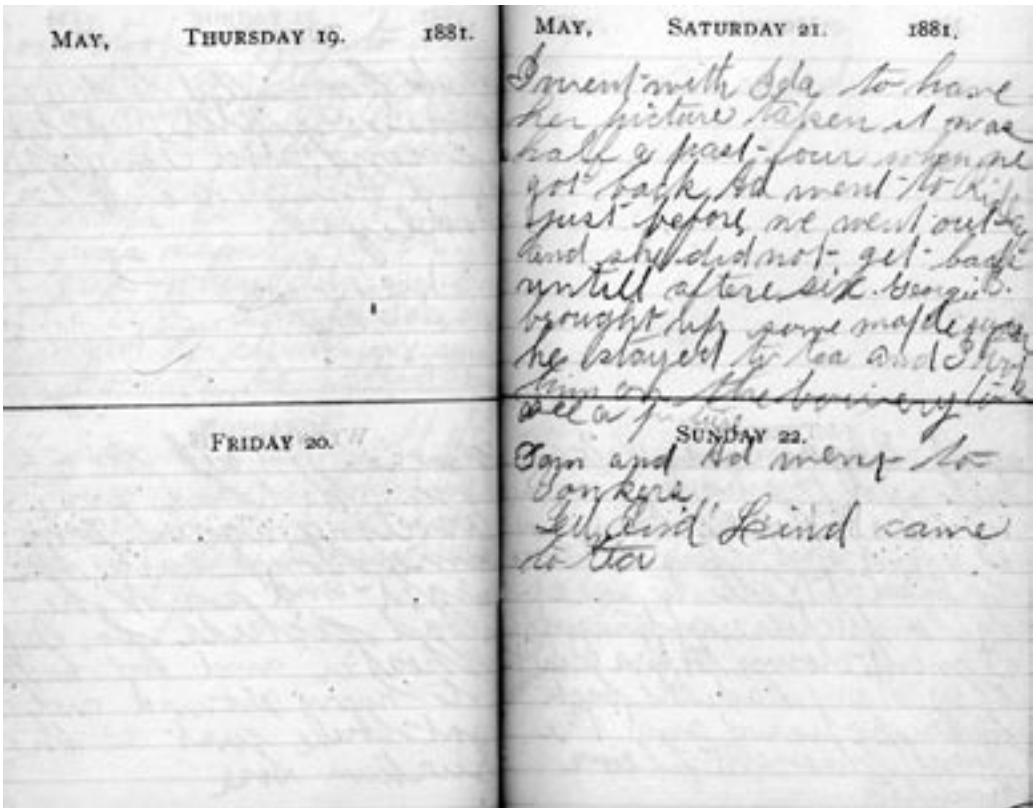 MAY, THURSDAY 19. 1881.
FRIDAY 20.
MAY, SATURDAY 21. 1881.
I went with Ida to have
her picture taken it was
half a past four when we
got back Ad went to
just before we went out
and she did not get back
untill aftere six. Georgie
brought up some maple sugar
he stayed to tea and I
him on the bowery to
see a picture
SUNDAY 22.
Tom and Ad went to
Yonkers
Lind came
to tea